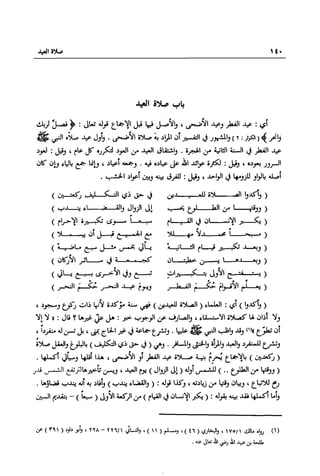 ١٤٠
صلاة العيد
باب صلاة العيد
أي : عيد الفطر وعيد الأضحى ، والأصل فيها قبل الإجماع قوله تعالى : ﴿ فصل لربك
وانحر ﴾ (الكوثر : ٢) والمشهور في التفسير أن المراد به صلاة الأضحى . وأول عيد صلاه النبي ﷺ
عيد الفطر في السنة الثانية من الهجرة . واشتقاق العيد من العود لتكرره كل عام ، وقيل : لعود
السرور بعوده ، وقيل : لكثرة عوائد الله على عباده فيه . وجمعه أعياد ، وإنما جمع بالياء وإن كان
أصله بالواو للزومها في الواحد ، وقيل : للفرق بينه وبين أعواد الخشب .
( وأكدوا الصلاة للعيدين في حق ذي التكليف ركعتين )
( ووقتها من الطلوع يحسب إلى الزوال والقضاء يندب )
( يكبر الإنسان في القيام سبعاً سوى تكبيرة الإحرام )
( مسبحاً محمدلاً مهللا مع الجميع قبل أن يبسملا )
( وبعد تكبير قيام الثانية يأتي بخمس مثل سبع ماضية )
( وبعدها يسن خطبتان كجمعة في سائر الأركان )
( يستفتح الأولى بتكبيرات تسع وفي الأخرى بسبع ياتي )
( يعلم الأقوام حكم الفطر ويوم عيد النحر حكم النحر )
( وأكدوا ) أي : العلماء ( الصلاة للعيدين ) فهي سنة مؤكدة لأنها ذات ركوع وسجود ،
ولا أذان لها كصلاة الاستسقاء ، والصارف عن الوجوب خبر : هل علي غيرها ؟ قال : « لا إلا
أن تطوع »(١) وقد واظب النبي ﷺ عليها . وتشرع جماعة في غير الحاج بمنى ، بل تسن له منفرداً ،
وتشرع للمنفرد والعبد والمرأة والخنثى والمسافر . وهي ( في حق ذي التكليف ) بالبلوغ والعقل صلاة
( ركعتين ) بالإجماع يُحرم بنية صلاة عيد الفطر أو الأضحى ، هذا أقلها وسيأتي أكملها .
( ووقتها من الطلوع .. ) للشمس أوله ( إلى الزوال ) يوم العيد ، ويسن تأخيرها لترتفع الشمس قدر
رمح للاتباع ، وبيان وقتها من زيادته ، وكذا قوله : ( والقضاء يندب ) وأفاد به أنه يندب قضاؤها .
وأما أكملها فقد بينه بقوله : ( يكبر الإنسان في القيام ) من الركعة الأولى ( سبعاً ) – بتقديم السين
(١) رواه مالك ١٧٥/١ ، والبخاري ( ٤٦ ) ، ومسلم ( ١١ ) ، والنسائي ٢٢٦/١ – ٢٢٨ ، وأبو داود ( ٣٩١ ) عن
طلحة بن عبيد الله رضي الله تعالى عنه .